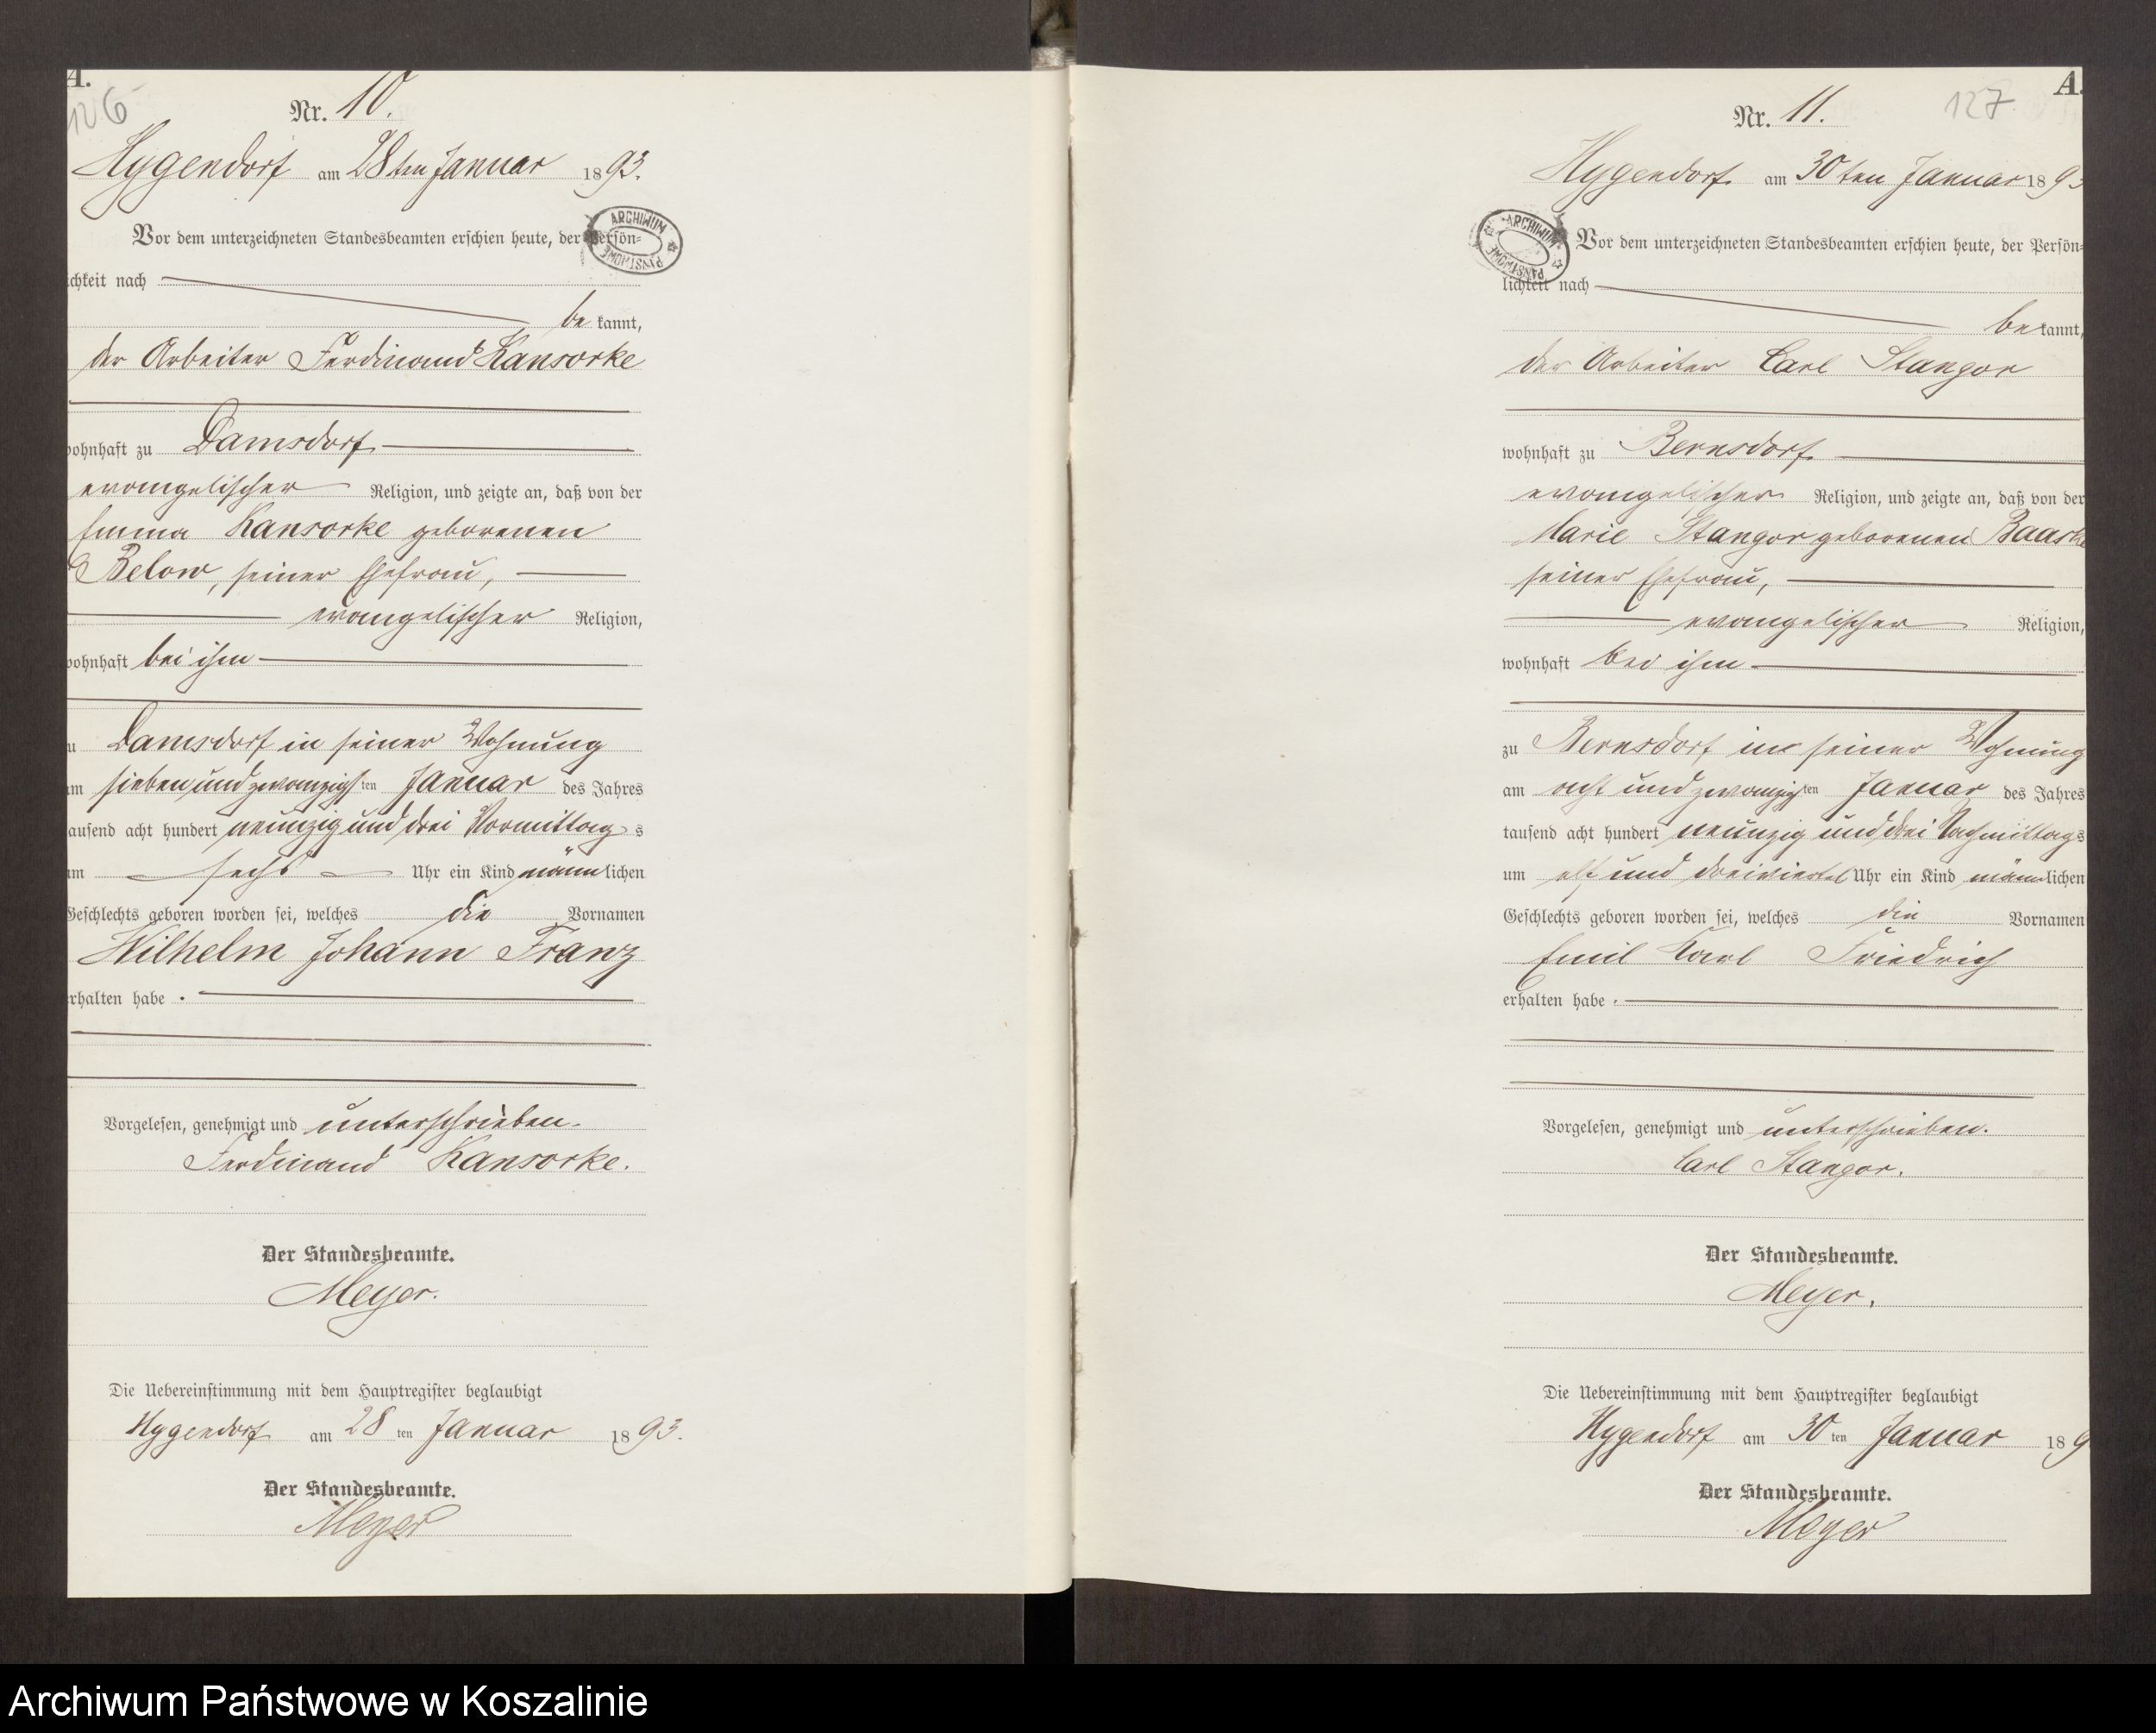 A.
126
Nr. 10.
Hygendorf am 28ten Januar 1893.
Vor dem unterzeichneten Standesbeamten erschien heute, der Persön=
ichkeit nach
be kannt,
der Arbeiter Ferdinand Kansorke
wohnhaft zu Damsdorf
evangelischer Religion, und zeigte an, daß von der
Emma Kansorke geborenen
Below, seiner Ehefrau,
evangelischer Religion,
wohnhaft bei ihm
zu Damsdorf in seiner Wohnung
am siebenundzwanzigsten Januar des Jahres
tausend acht hundert neunzig und drei Vormittags
um sechs Uhr ein Kind männlichen
Geschlechts geboren worden sei, welches die Vornamen
Wilhelm Johann Franz
erhalten habe.
Vorgelesen, genehmigt und unterschrieben.
Ferdinand Kansorke.
Der Standesbeamte.
Meyer.
Die Uebereinstimmung mit dem Hauptregister beglaubigt
Hygendorf am 28 ten Januar 1893.
Der Standesbeamte.
Meyer
ARCHIWUM PAŃSTWOWE
A.
127
Nr. 11.
Hygendorf am 30ten Januar 1893
Vor dem unterzeichneten Standesbeamten erschien heute, der Persön=
lichkeit nach
be kannt,
der Arbeiter Carl Stangor
wohnhaft zu Bernsdorf
evangelischer Religion, und zeigte an, daß von der
Marie Stangor geborenen Baaske
seiner Ehefrau,
evangelischer Religion,
wohnhaft bei ihm
zu Bernsdorf in seiner Wohnung
am acht und zwanzigsten Januar des Jahres
tausend acht hundert neunzig und drei Nachmittags
um elf und dreiviertel Uhr ein Kind männlichen
Geschlechts geboren worden sei, welches die Vornamen
Emil Karl Friedrich
erhalten habe.
Vorgelesen, genehmigt und unterschrieben.
Carl Stangor.
Der Standesbeamte.
Meyer.
Die Uebereinstimmung mit dem Hauptregister beglaubigt
Hygendorf am 30 ten Januar 189
Der Standesbeamte.
Meyer
ARCHIWUM PAŃSTWOWE
Archiwum Państwowe w Koszalinie